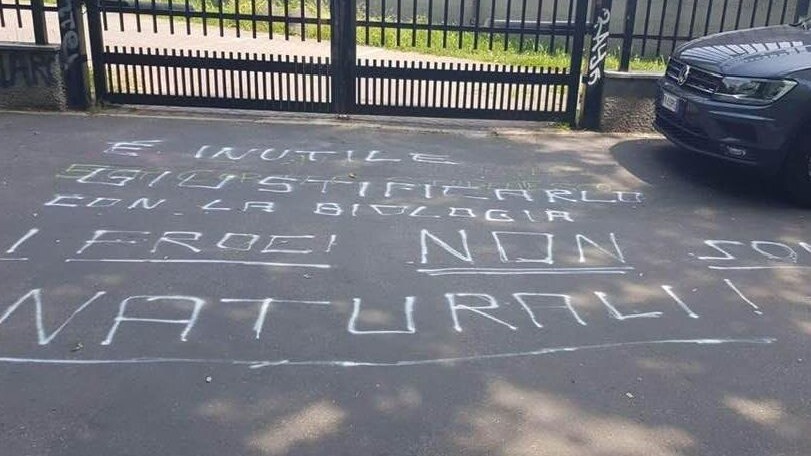 È INUTILE
GIUSTIFICARLO
CON LA BIOLOGIA
I EROEI NON SON
NATURALI!